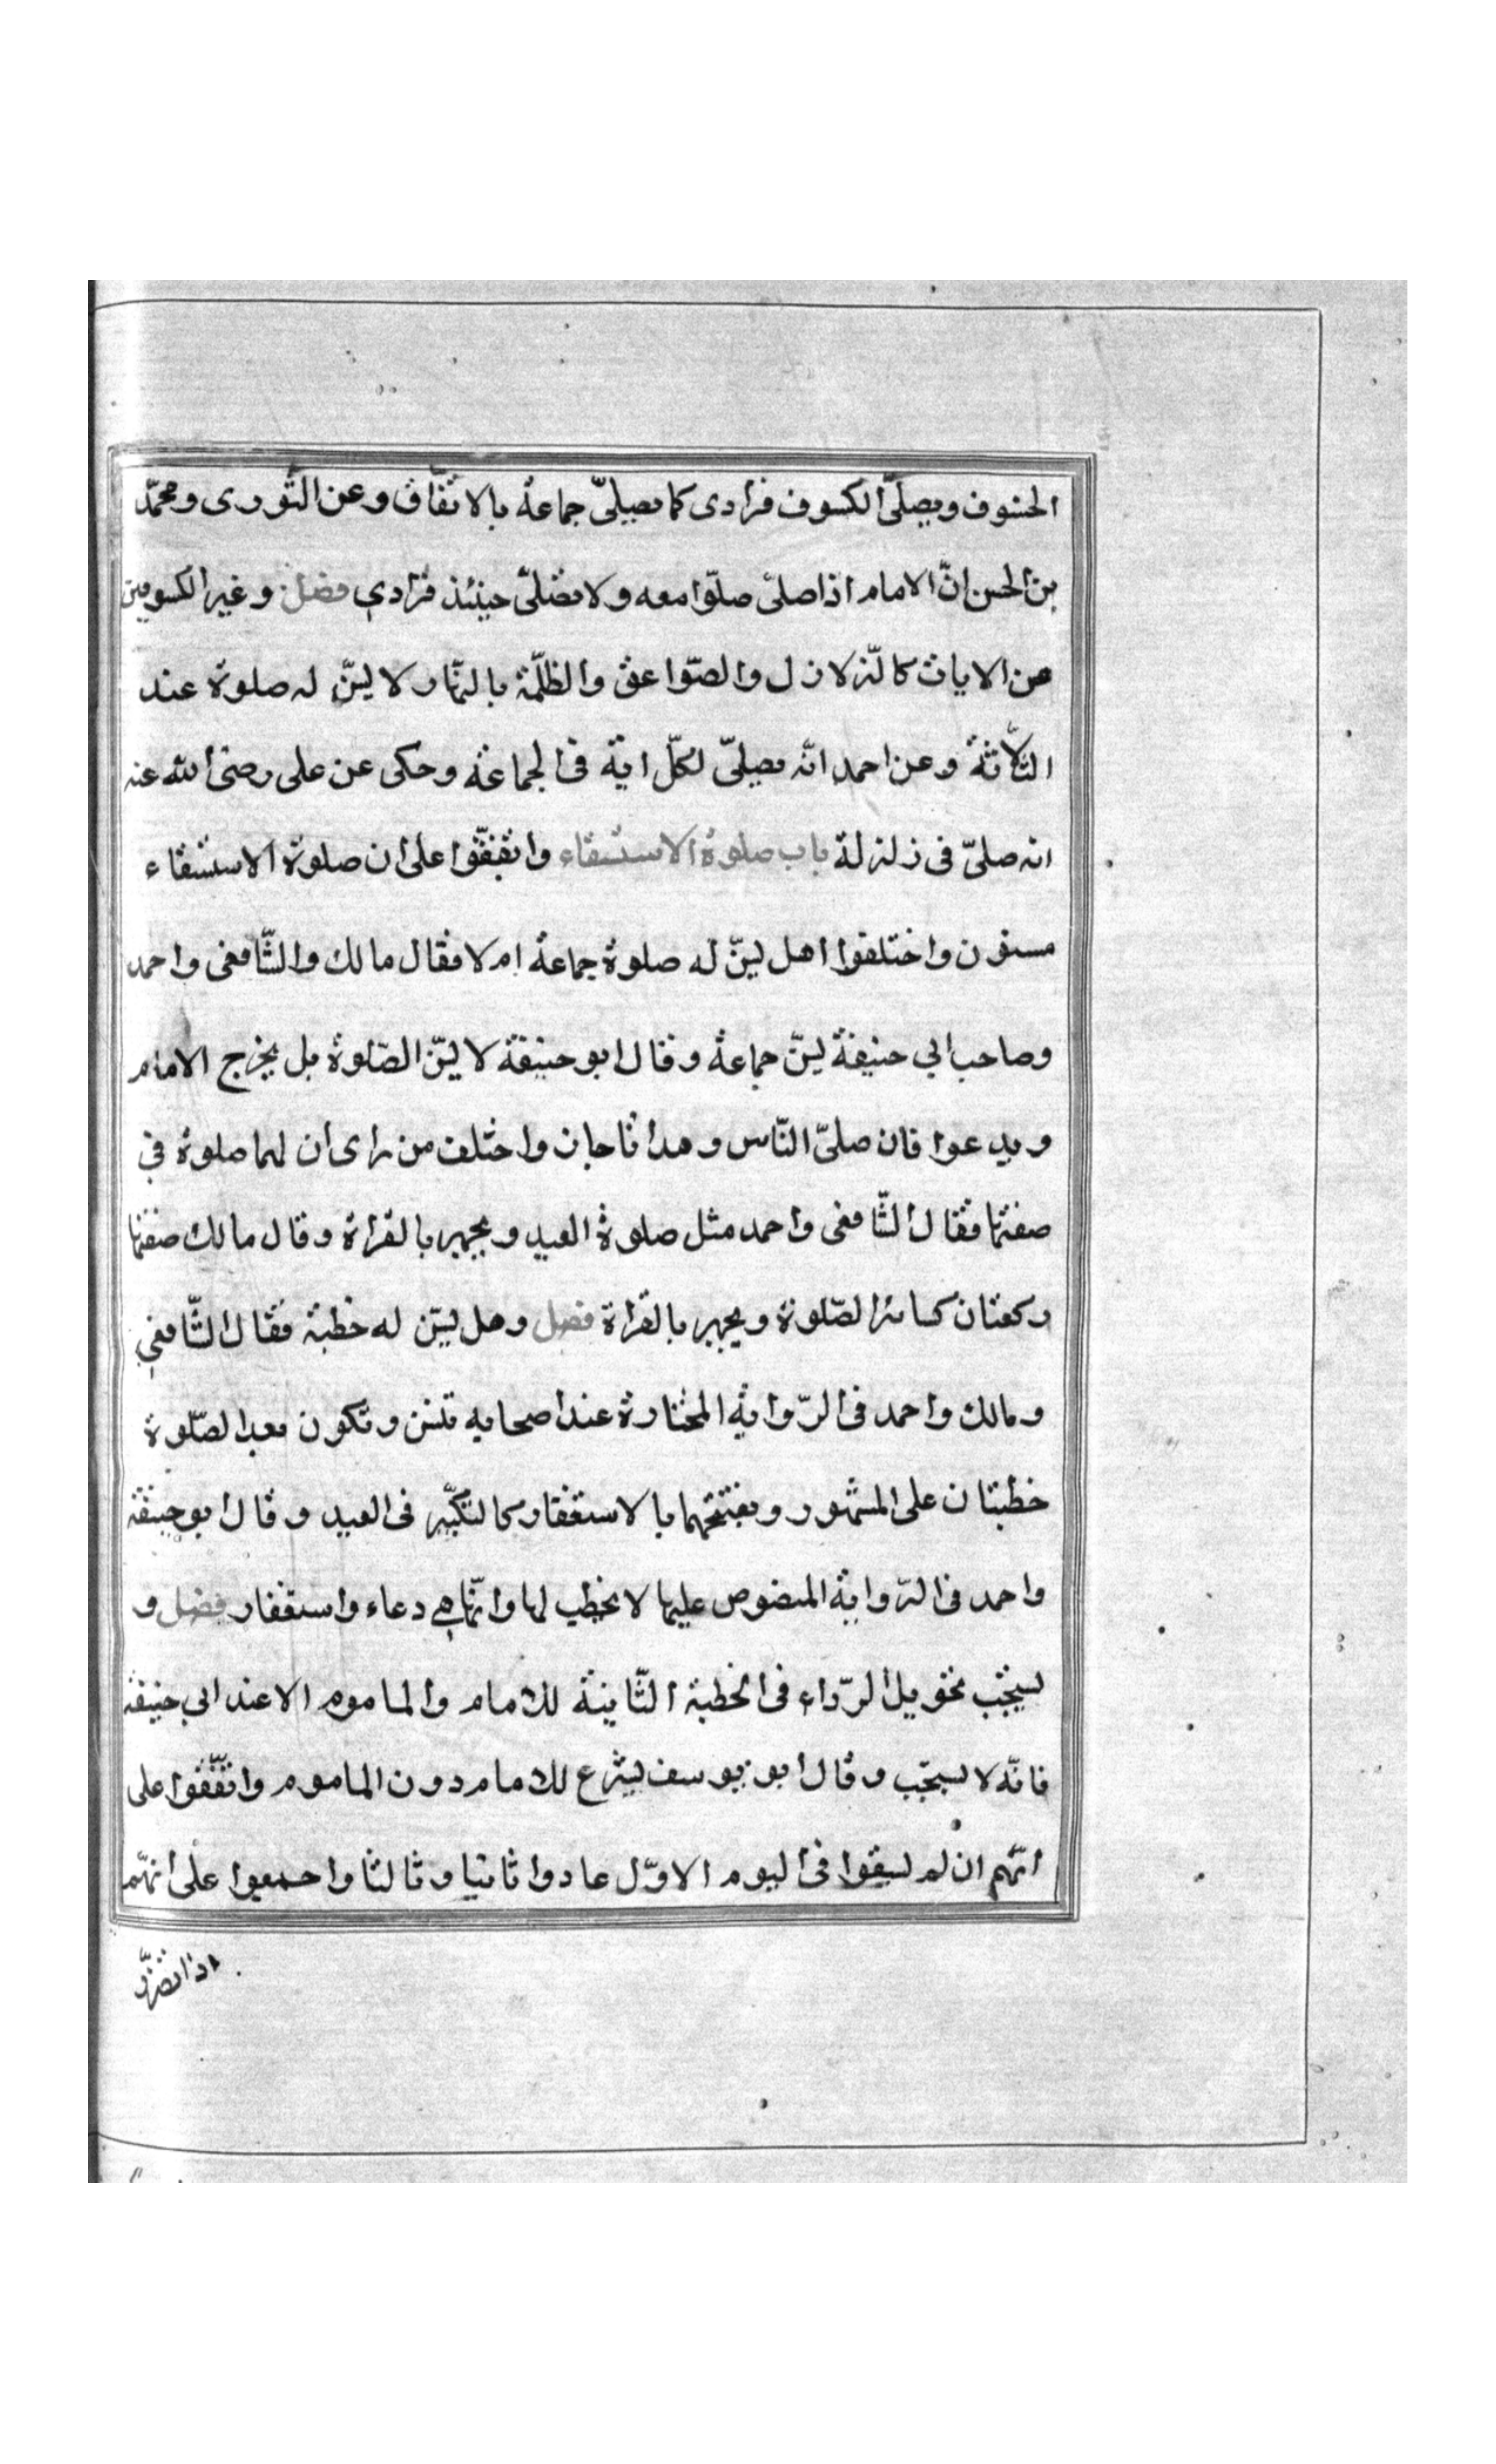 الخسوف ويصلّى الكسوف فرادى كما يصلىّ جماعة بالاتفاق وعن الثّورى ومحمّد
بن الحسن انّ الامام اذا صلىّ صلّوا معه ولا تصلىّ حينئذ فرادى فصل وغير الكسوفين
من الايات كالزّلازل والصّواعق والظلّمة بالنّهار لا يسنّ له صلوة عند
الثّلاثة وعن احمد انّه يصلىّ لكلّ اية فى الجماعة وحكى عن على رضى الله عنه
انه صلىّ فى زلزلة باب صلوة الاستسقاء واتّفقّوا على ان صلوة الاستسقاء
مسنون واختلفوا هل يسنّ له صلوة جماعة ام لا فقال مالك والشّافعى واحمد
وصاحب ابي حنيفة يسنّ جماعة وقال ابو حنيفة لا يسنّ الصّلوة بل يخرج الامام
ويدعوا فان صلىّ النّاس وحدانا جاز واختلف من راى ان لها صلوة في
صفتها فقال الشّافعى واحمد مثل صلوة العيد ويجهر بالقراة وقال مالك صفتها
ركعتان كسائر الصّلوة ويجهر بالقراة فصل وهل يسّن له خطبة فقال الشّافعي
ومالك واحمد فى الرّواية المختارة عند اصحابه تسّن وتكون بعد الصّلوة
خطبتان على المشهور ويفتتحهما بالاستغفار كالتكبّير فى العيد وقال ابو حنيفة
واحمد فى الرّواية المنصوص عليها لا يخطب لها وانّما هي دعاء واستغفار فصل و
يستحّب تحويل الرّداء فى الخطبة الثّانية للامام والماموم الا عند ابي حنيفة
فانّه لا يستحّب وقال ابو يوسف يشرع للامام دون الماموم واتفّقوا على
انّهم ان لم يسقوا فى اليوم الاوّل عادوا ثانيا وثالثا واجمعوا على انهّم
اذا تضرّر